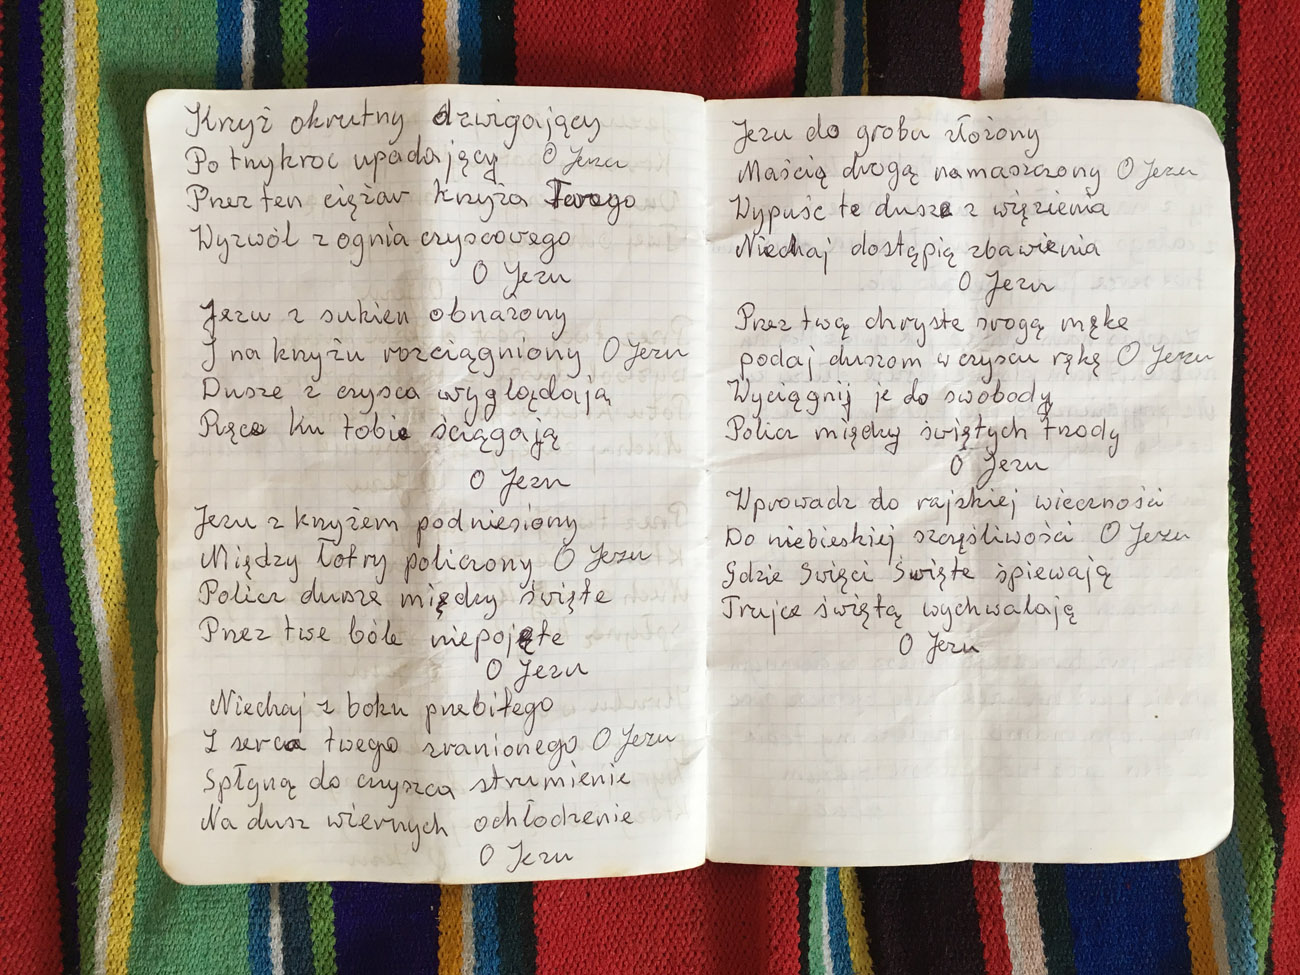 Krzyż okrutny dzwigający
Po trzykroc upadający O Jezu
Przez ten ciężar Krzyża Twego
Wyzwól z ognia czyscowego
O Jezu
Jezu z sukien obnażony
I na krzyżu rozciągniony O Jezu
Dusze z czysca wyglądają
Ręce ku tobie ściągają
O Jezu
Jezu z krzyżem podniesiony
Między Łotry policzony O Jezu
Policz dusze między święte
Przez twe bóle niepojęte
O Jezu
Niechaj z boku przebiłego
Z serca twego zranionego O Jezu
Spłyną do czyszca strumienie
Na dusz wiernych ochłodzenie
O Jezu
Jezu do grobu złożony
Maścią drogą namaszczony O Jezu
Wypuśc te dusze z więzienia
Niechaj dostąpią zbawienia
O Jezu
Przez twą chryste srogą mękę
podaj duszom w czyscu rękę O Jezu
Wyciągnij je do swobody
Policz między świętych trzody
O Jezu
Wprowadz do rajskiej wieczności
Do niebieskiej szczęśliwości O Jezu
Gdzie Święci święte śpiewają
Trujce świętą wychwalają
O Jezu